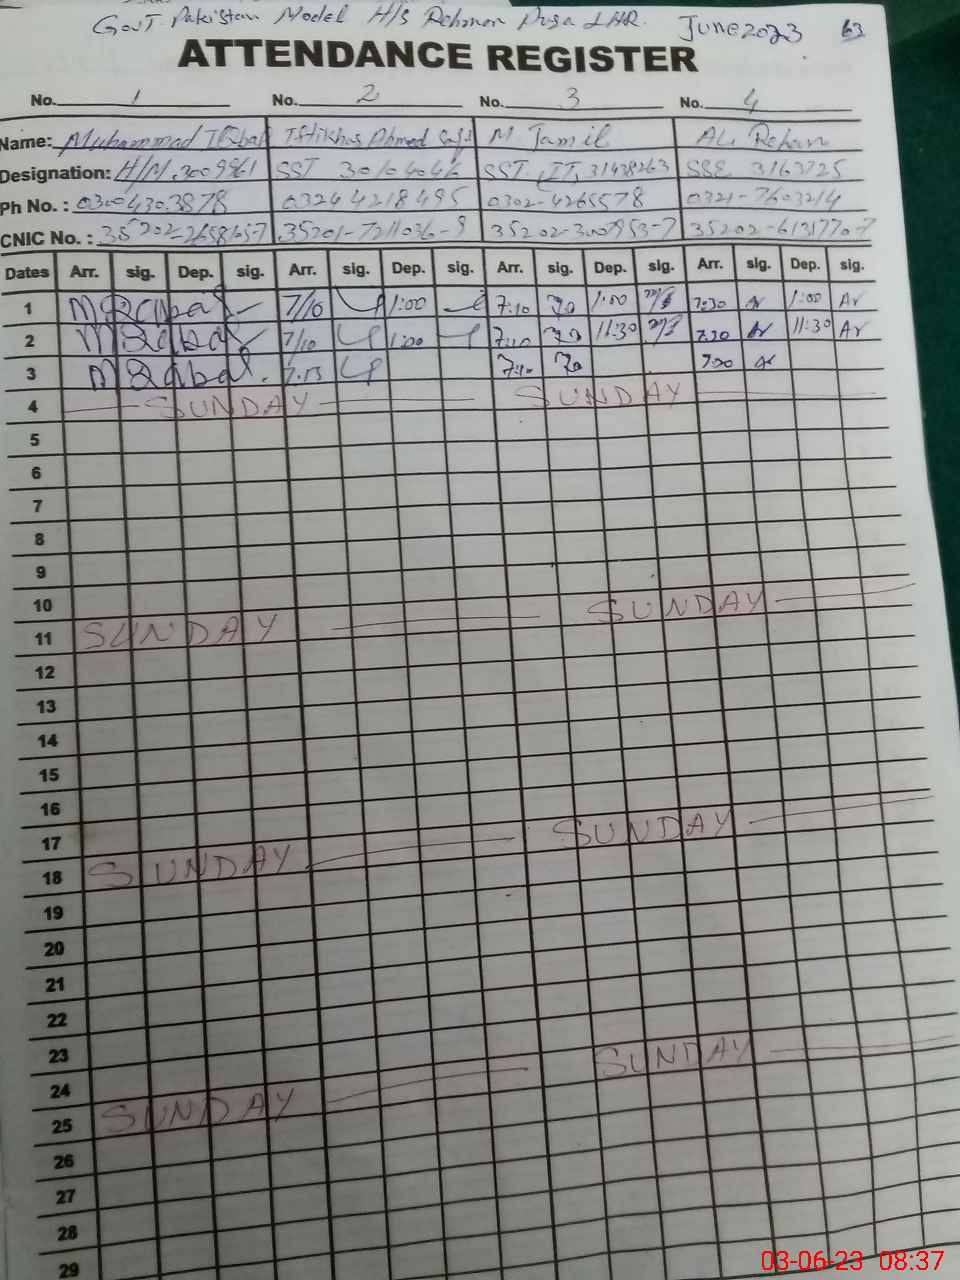 Govt Pakistan Model H/s Rehman Pura LHR. June 2023 63
ATTENDANCE REGISTER
No. 1 No. 2 No. 3 No. 4
Name: Muhammad Iqbal Iftikhar Ahmed M Jamil Ali Rehan
Designation: H/M. 3009961 SST 30104046 SST (IT) 31438263 SSE 3163725
Ph No. : 03004303878 0324 4218495 0302-4265578 0321-7603214
CNIC No. : 35202-2658165-7 35201-7211036-9 35202-3007953-7 35202-6131770-7
Dates Arr. sig. Dep. sig. Arr. sig. Dep. sig. Arr. sig. Dep. sig. Arr. sig. Dep. sig.
1 M Iqbal 7/10 1:00 7:10 1:00 7:30 Ar 1:00 Ar
2 M Iqbal 7/10 1:00 7:10 11:30 7:30 Ar 11:30 Ar
3 M Iqbal. 7:15 7:10 7:30 Ar
4 SUNDAY SUNDAY
5
6
7
8
9
10
11 SUNDAY SUNDAY
12
13
14
15
16
17
18 SUNDAY SUNDAY
19
20
21
22
23
24
25 SUNDAY SUNDAY
26
27
28
29
03-06-23 08:37